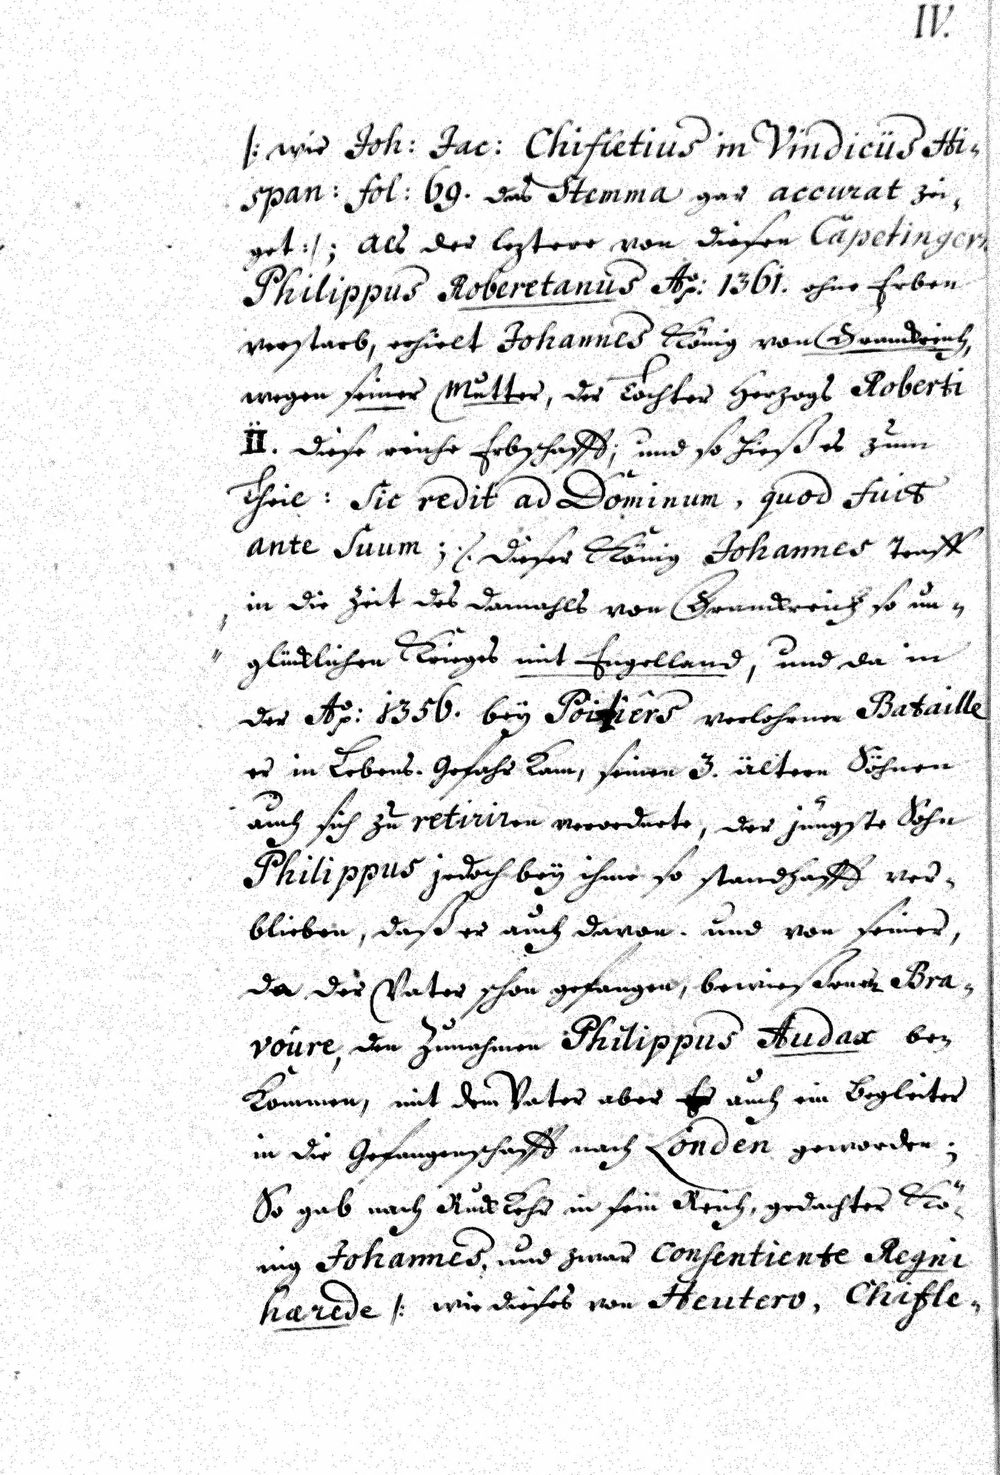 IV.
/: wie Joh: Jac: Chifletius in Vindiciis Hi-
span: fol: 69. das Stemma gar accurat zei-
get :/; Als der leztere von diesen Capetingern
Philippus Roberetanus Ao: 1361. ohne Erben
verstarb, erhielt Johannes König von Franckreich,
wegen seiner Mutter, der Tochter Herzogs Roberti
II. diese reiche Erbschafft; und so hieß es zum
Theil: Sic redit ad Dominum, quod fuit
ante Suum; /. dieser König Johannes traff
in die Zeit des damahls von Franckreich so un-
glücklichen Krieges mit Engelland, und da in
der Ao: 1356. bey Poitiers verlohrnen Bataille
er in Lebens-Gefahr kam, seinen 3. ältern Söhnen
auch sich zu retiriren verordnete, der jüngste Sohn
Philippus jedoch bey ihme so standhafft ver-
blieben, daß er auch davon und von seiner,
da der Vater schon gefangen, bewießenen Bra-
voure, den Zunahmen Philippus Audax be-
kommen, mit dem Vater aber Er auch ein Begleiter
in die Gefangenschafft nach Londen geworden;
So gab nach Ruckkehr in sein Reich, gedachter Kö-
nig Johannes, und zwar consentiente Regni
hærede /: wie dieses von Heutero, Chifle-